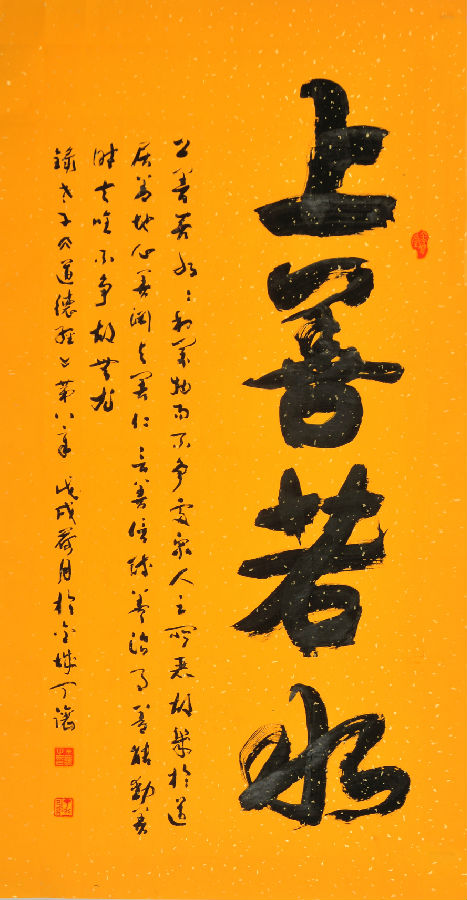 上善若水
上善若水〻利萬物而不爭處衆人之所惡故幾於道
居善地心善淵與善仁言善信政善治事善能動善
時夫唯不爭故無尤
錄老子《道德經》第八章 戊戌荷月於金城丁讓